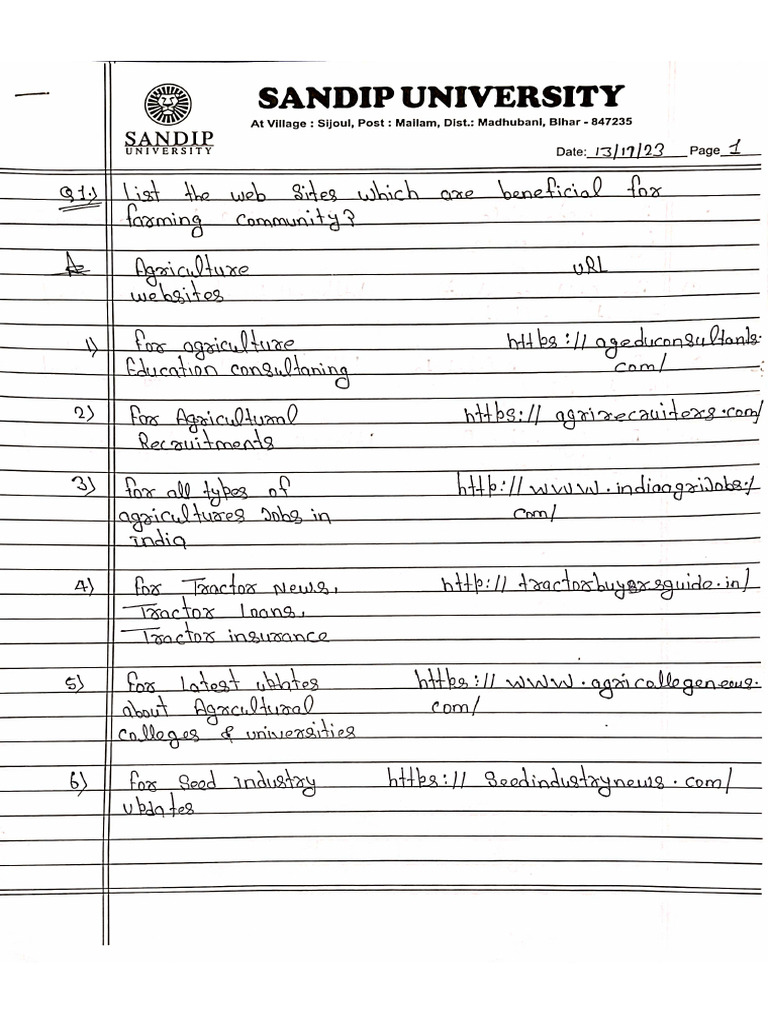 SANDIP UNIVERSITY
At Village : Sijoul, Post : Mailam, Dist.: Madhubani, Bihar - 847235
SANDIP
UNIVERSITY
Date: 13/17/23 Page 1
Q1.) List the web sites which are beneficial for
farming community?
Agriculture URL
websites
1) for agriculture https://ageduconsultants.
Education consultaning com/
2) for Agricultural https://agrirecruiters.com/
Recruitments
3) for all types of http://www.indiaagriJobs./
agricultures Jobs in com/
india
4) for Tractor News, http://tractorbuyersguide.in/
Tractor Loans,
Tractor insurance
5) for latest https://www.agricollegenews.
about Agrcultural com/
colleges & universities
6) for Seed industry https://seedindustrynews.com/
updates